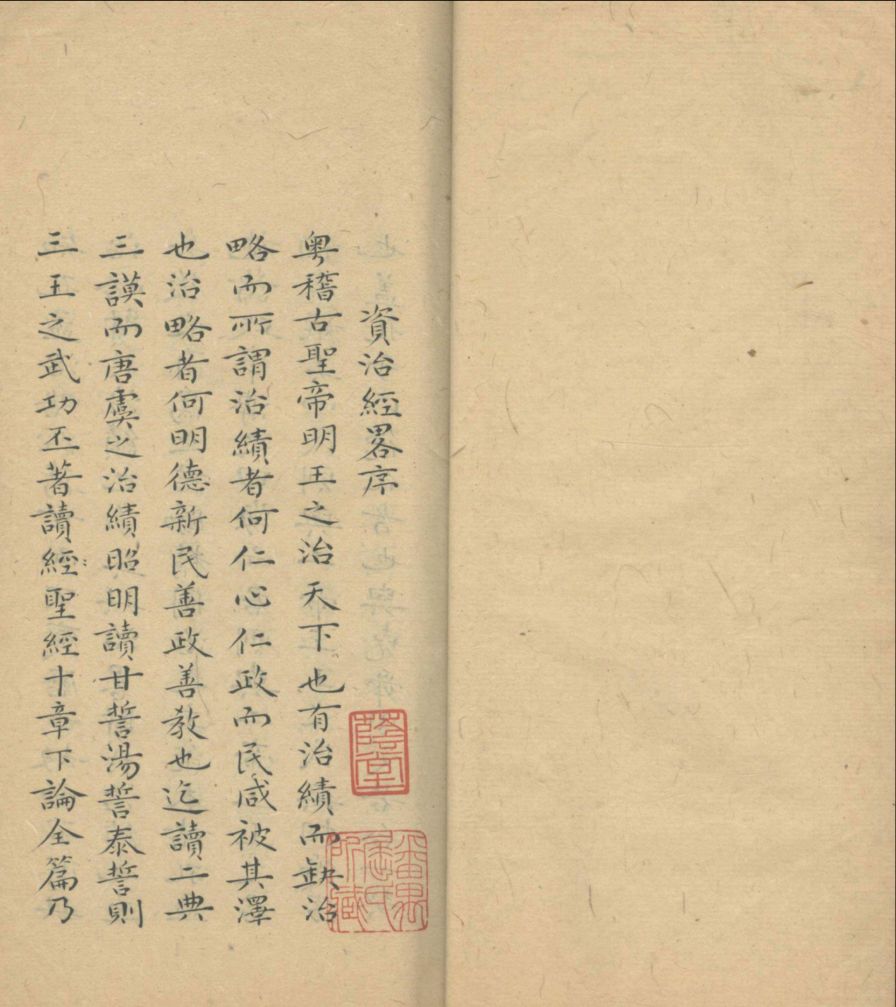 資治經畧序
粤稽古聖帝明王之治天下也有治績而缺治
略而所謂治績者何仁心仁政而民咸被其澤
也治略者何明德新民善政善教也迄讀二典
三謨而唐虞之治績昭明讀甘誓湯誓泰誓則
三王之武功丕著讀經聖經十章下論全篇乃
蔭堂
番禺屈氏所藏